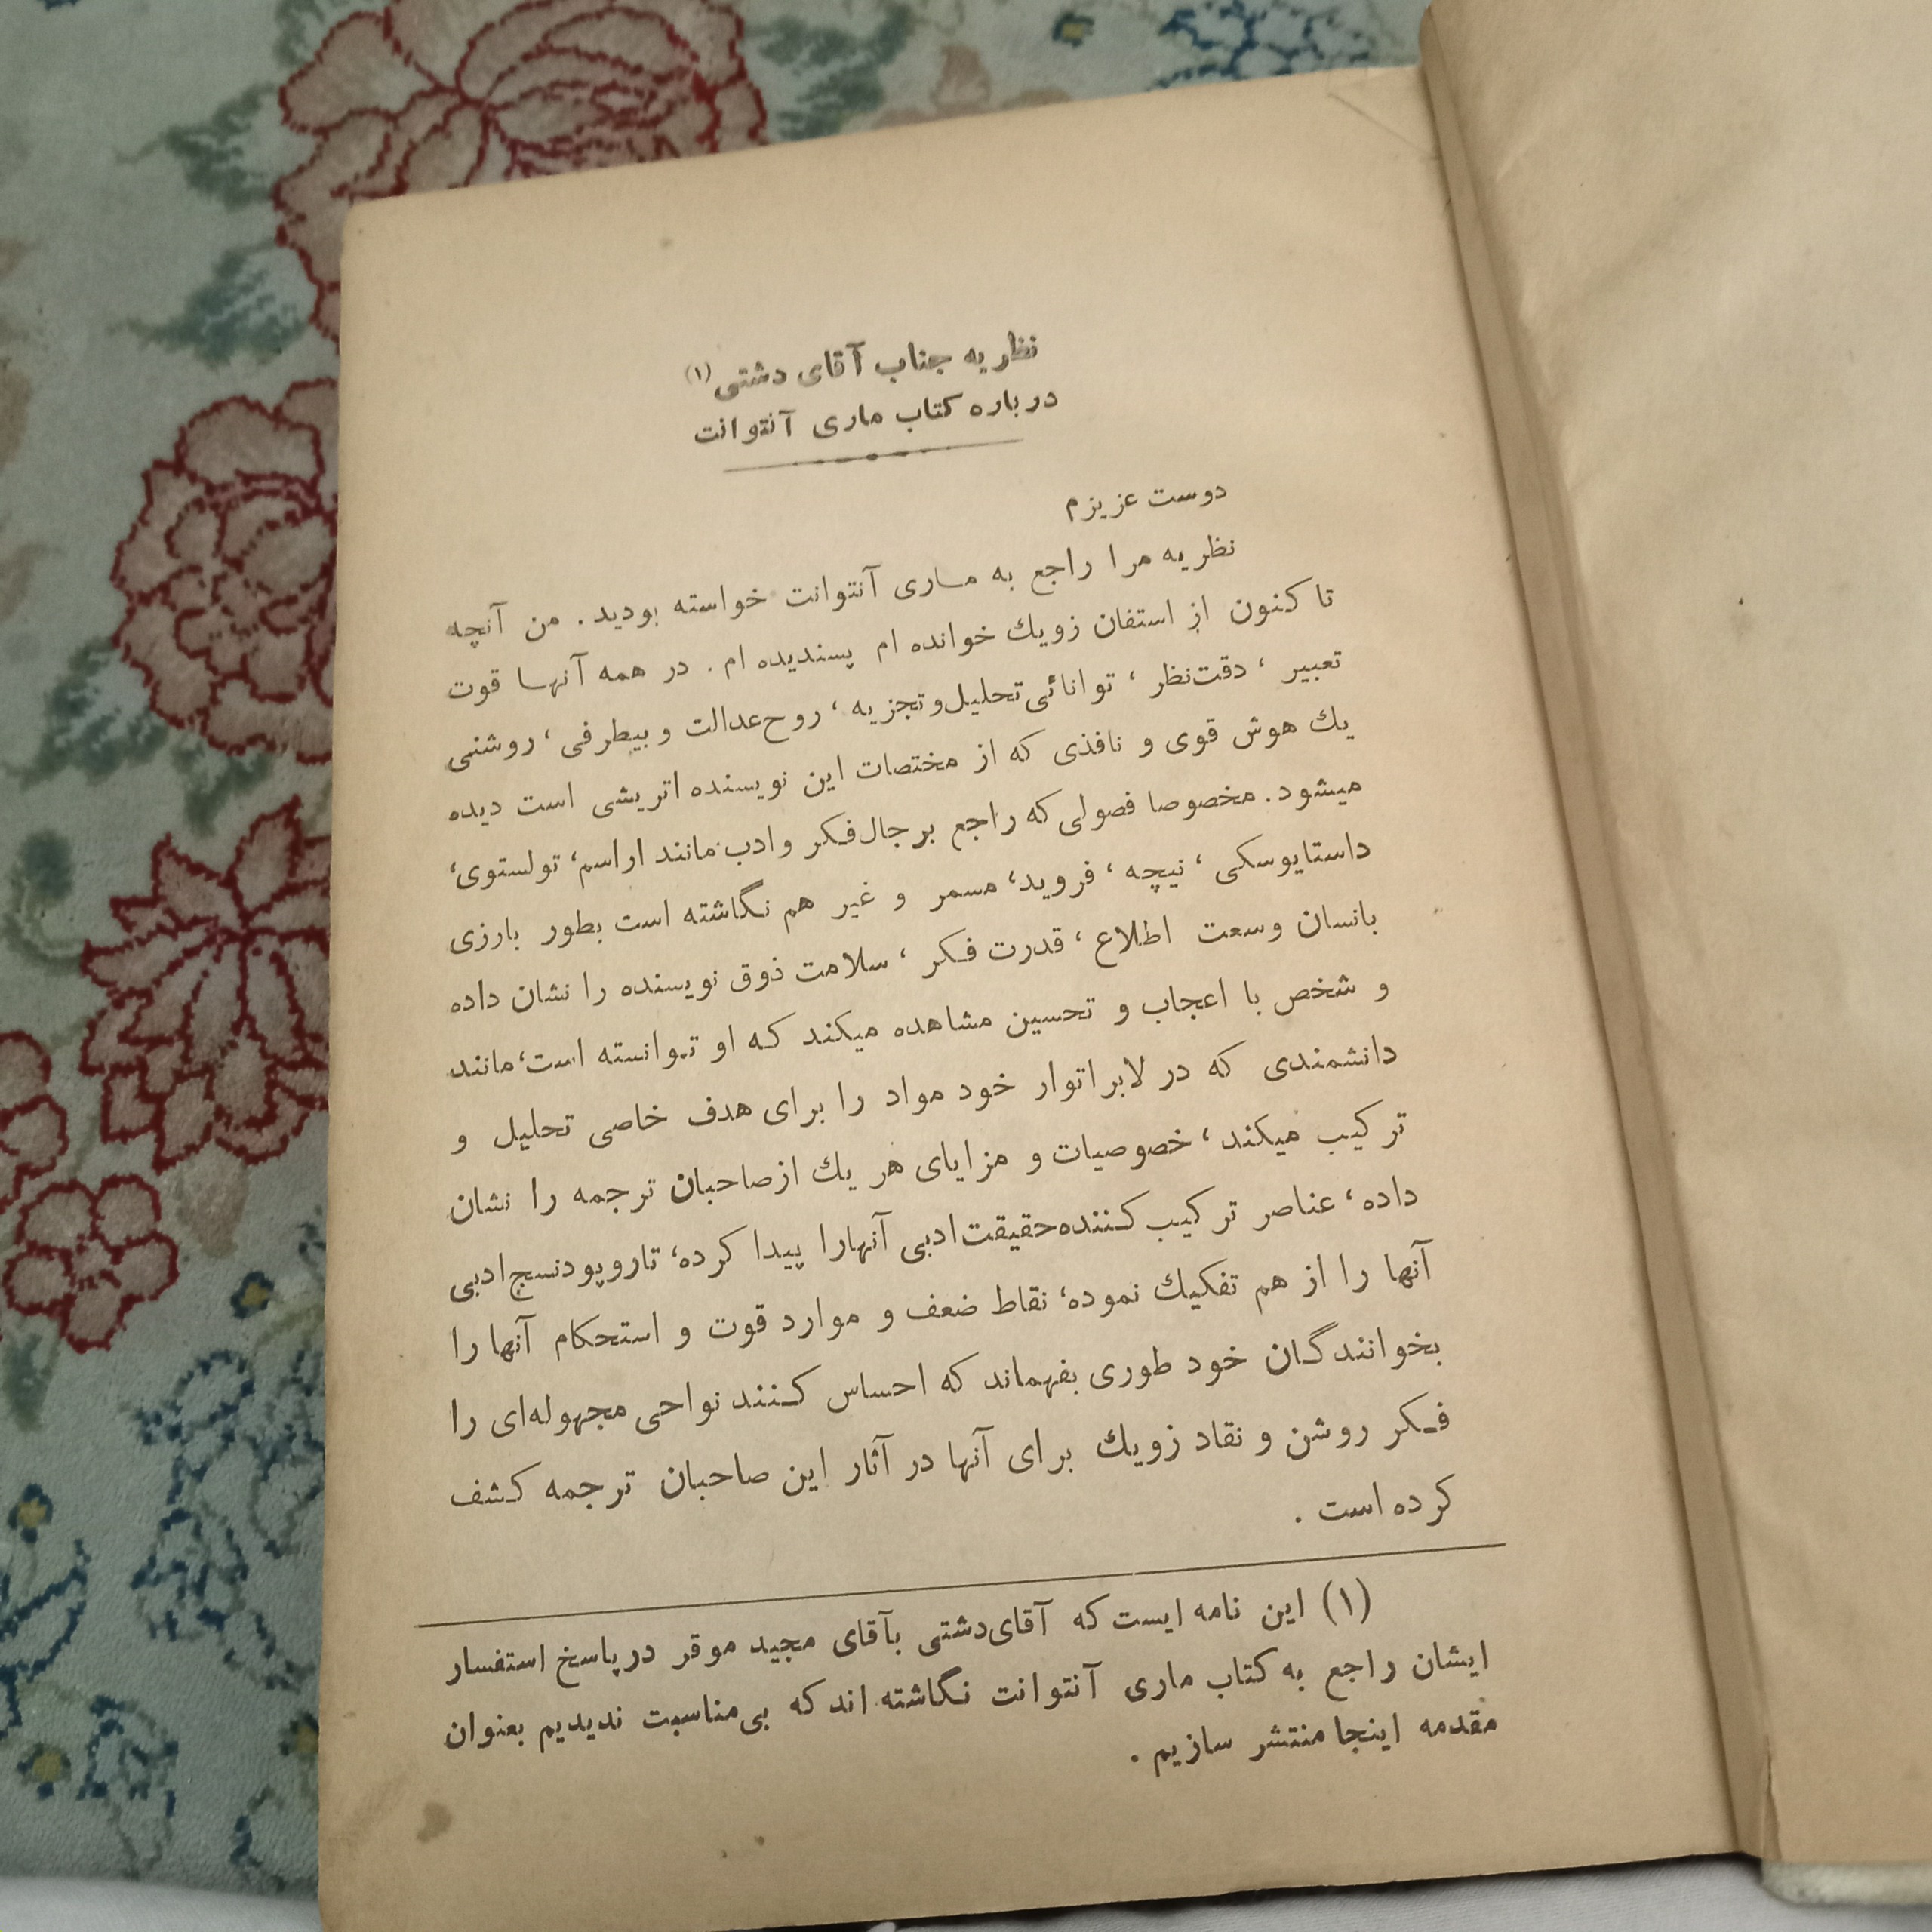 نظریه جناب آقای دشتی (۱)
درباره کتاب ماری آنتوانت
دوست عزیزم
نظریه مرا راجع به ماری آنتوانت خواسته بودید. من آنچه
تا کنون از استفان زویك خوانده ام پسندیده ام. در همه آنها قوت
تعبیر ، دقت‌نظر ، توانائی تحلیل و تجزیه ، روح عدالت و بیطرفی ، روشنی
یك هوش قوی و نافذی که از مختصات این نویسنده اتریشی است دیده
میشود. مخصوصا فصولی که راجع برجال فکر و ادب مانند اراسم، تولستوی،
داستایوسکی ، نیچه ، فروید، مسمر و غیر هم نگاشته است بطور بارزی
بانسان وسعت اطلاع ، قدرت فکر ، سلامت ذوق نویسنده را نشان داده
و شخص با اعجاب و تحسین مشاهده میکند که او توانسته است، مانند
دانشمندی که در لابراتوار خود مواد را برای هدف خاصی تحلیل و
ترکیب میکند ، خصوصیات و مزایای هر یك از صاحبان ترجمه را نشان
داده ، عناصر ترکیب کننده حقیقت ادبی آنهارا پیدا کرده، تاروپود نسج ادبی
آنها را از هم تفکیك نموده، نقاط ضعف و موارد قوت و استحکام آنها را
بخوانندگان خود طوری بفهماند که احساس کنند نواحی مجهوله‌ای را
فکر روشن و نقاد زویك برای آنها در آثار این صاحبان ترجمه کشف
کرده است .
(۱) این نامه ایست که آقای دشتی بآقای مجید موقر در پاسخ استفسار
ایشان راجع به کتاب ماری آنتوانت نگاشته اند که بی مناسبت ندیدیم بعنوان
مقدمه اینجا منتشر سازیم .